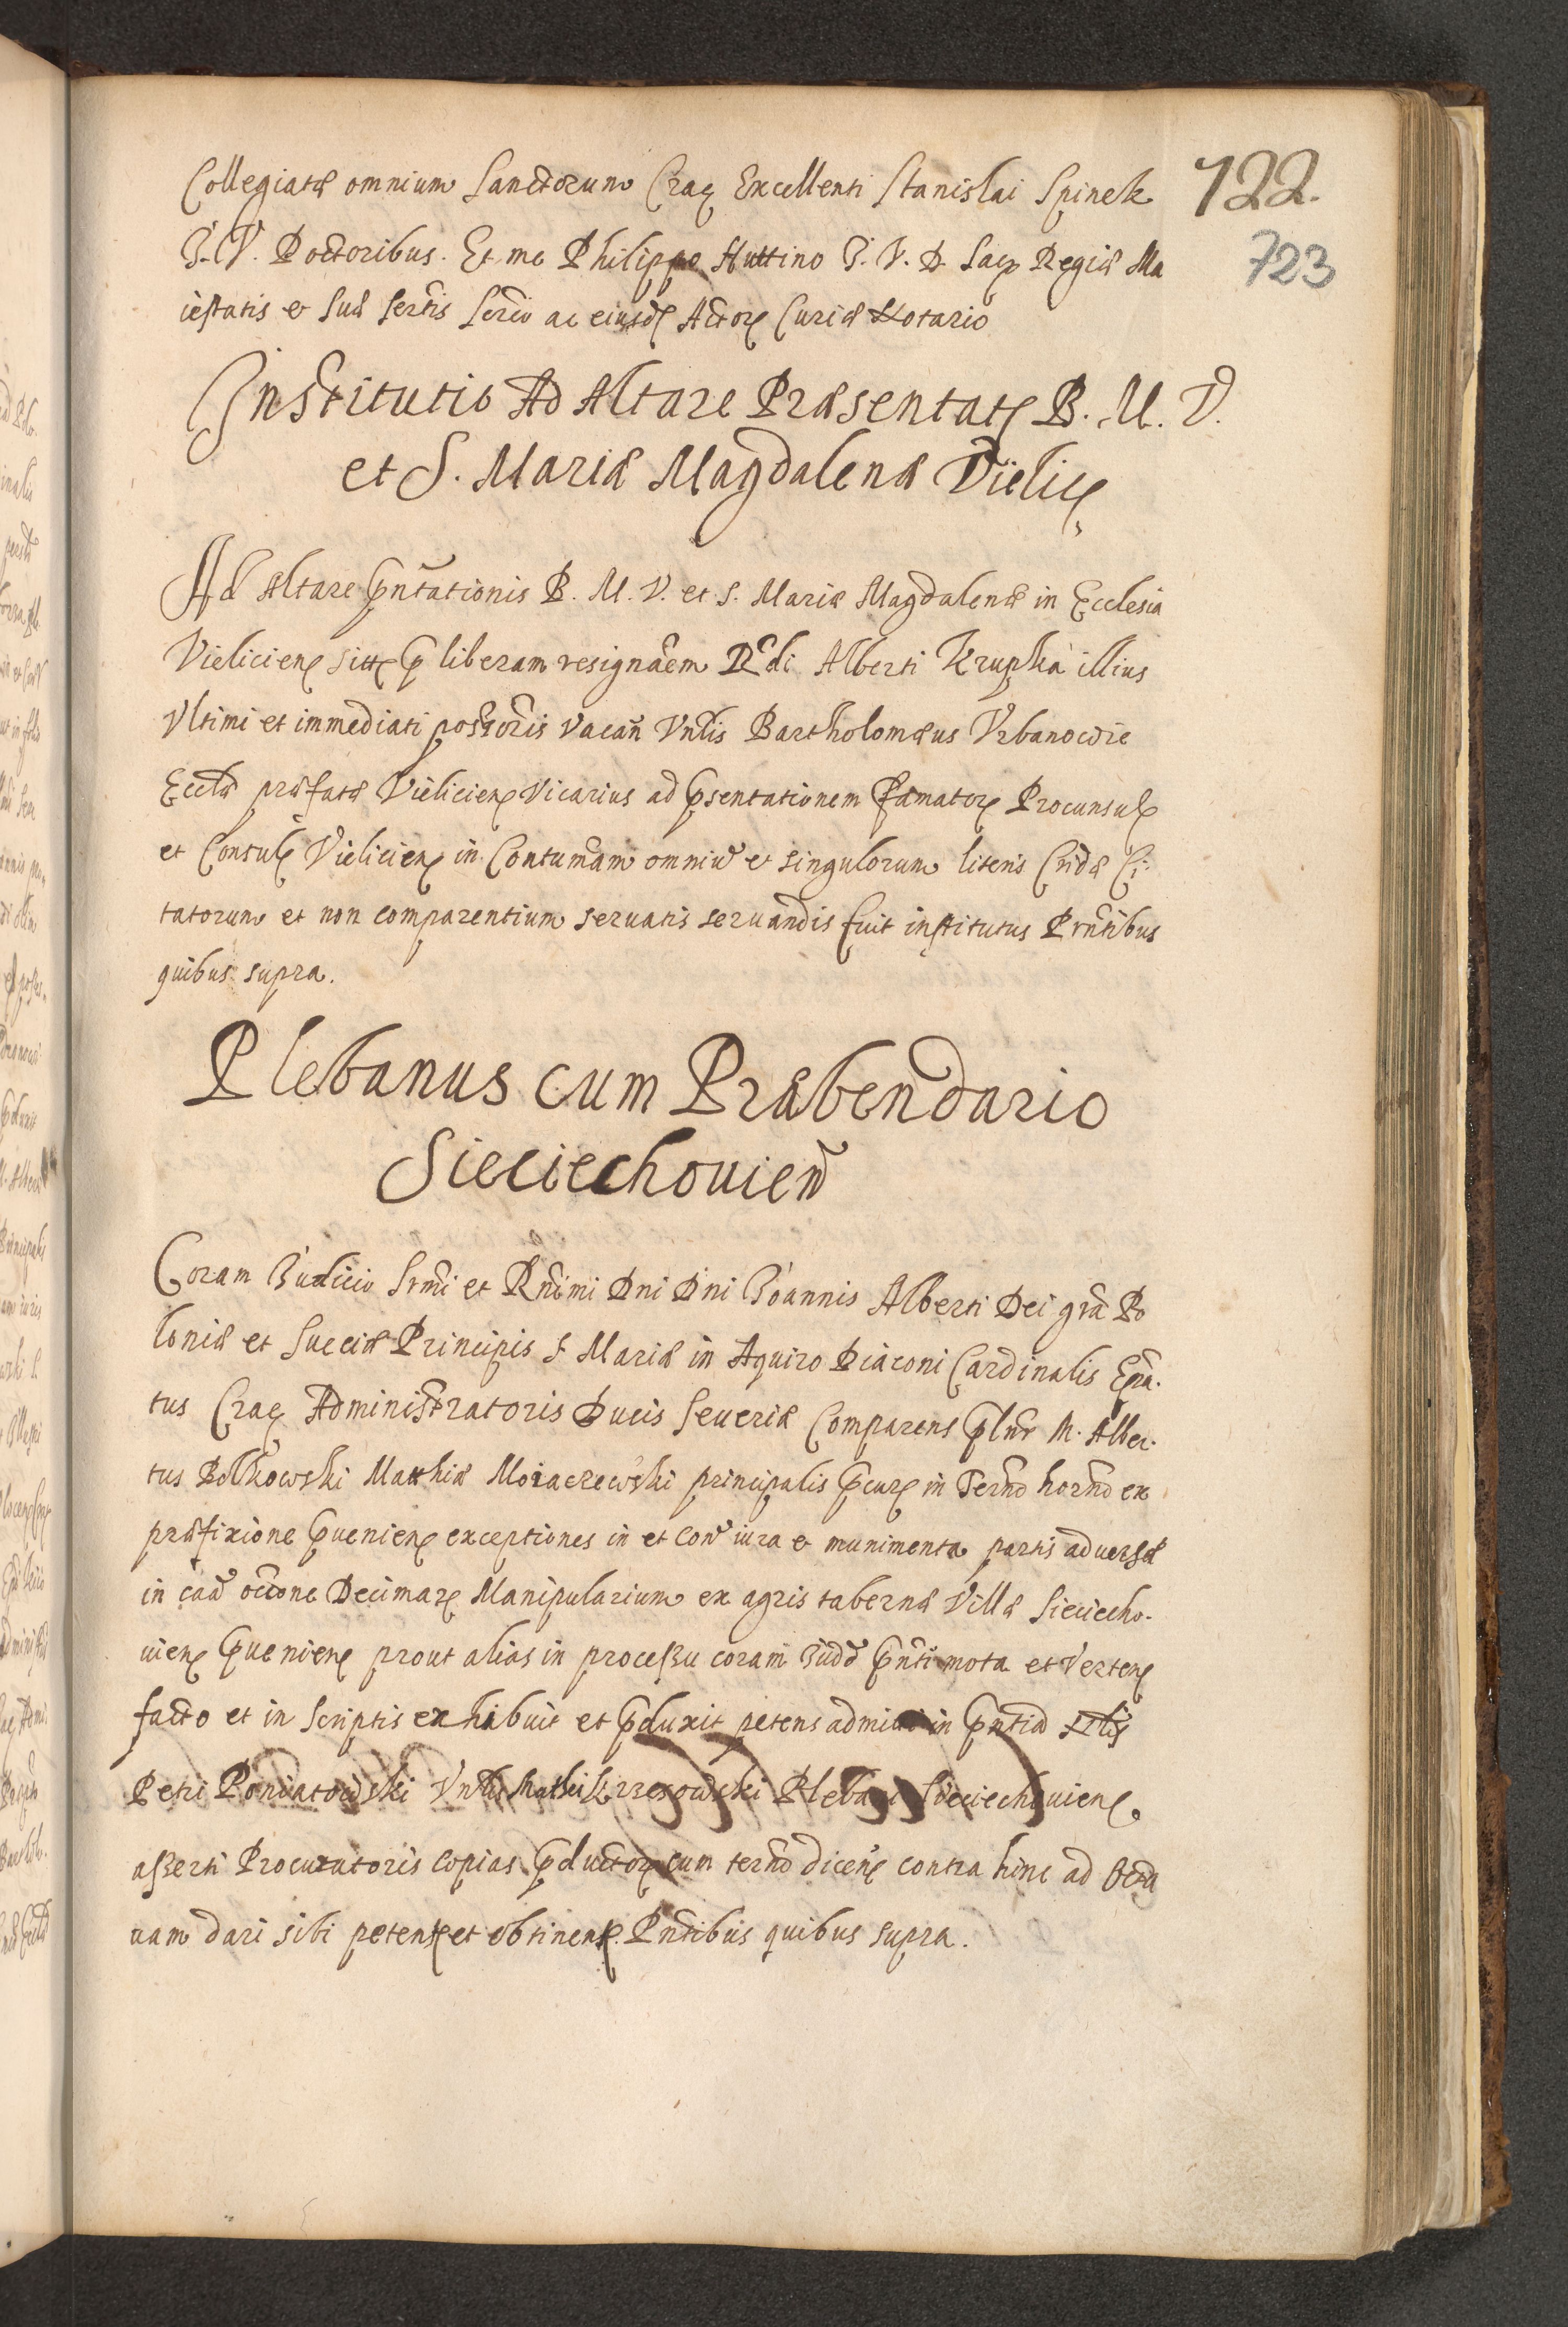 122.
723
Collegiatæ omnium Sanctorum Crac Excellenti Stanislai Spinek
J. V. Doctoribus. Et me Philippo Huttino J. V. D. Sacr Regiæ Ma
iestatis et Suæ Sertis Scrio ac eiusd Actor Curiæ Notario
Institutio Ad Altare Præsentat B. M. V.
et S. Mariæ Magdalenæ Vielic
Ad Altare Pntationis B. M. V. et S. Mariæ Magdalenæ in Ecclesia
Vielicien sitt p liberam resignaem Rdi Alberti Krupka illius
Vltimi et immediati possoris vacan Vnlis Bartholomæus Vrbanowic
Ecclæ præfatæ Vielicien Vicarius ad psentationem famator Procunsul
et Consul Vielicien in Contumam omniu et singulorum literis Cridæ Ci-
tatorum et non comparentium seruatis seruandis fuit institutus Prntibus
quibus supra.
Plebanus cum Præbendario
Sieciechouien
Coram Judicio Srmi et Rndmi Dni Dni Joannis Alberti Dei gra Po
loniæ et Sueciæ Principis S. Mariæ in Aquiro Diaconi Cardinalis Epa-
tus Crac Administratoris Ducis Seueriæ Comparens plnr M. Alber-
tus Bolkowski Matthiæ Moraczewski principalis pcur in Terno horno ex
præfixione puenien exceptiones in et con iura et munimenta partis aduersæ
in caa occone Decimar Manipularium ex agris tabernæ Villæ Sieciecho-
uien pue nien prout alias in processu coram Judo pnti mota et Verten
facto et in Scriptis exhibuit et pduxit petens admitti in pntia Nlis
Petri Poniatowski Vnlis Mathei Krzezowski Plebani Sieciechouien
asserti Procuratoris copias pductor cum terno dicen contra hinc ad Octa
uam dari sibi petens et obtinens. Pntibus quibus supra.